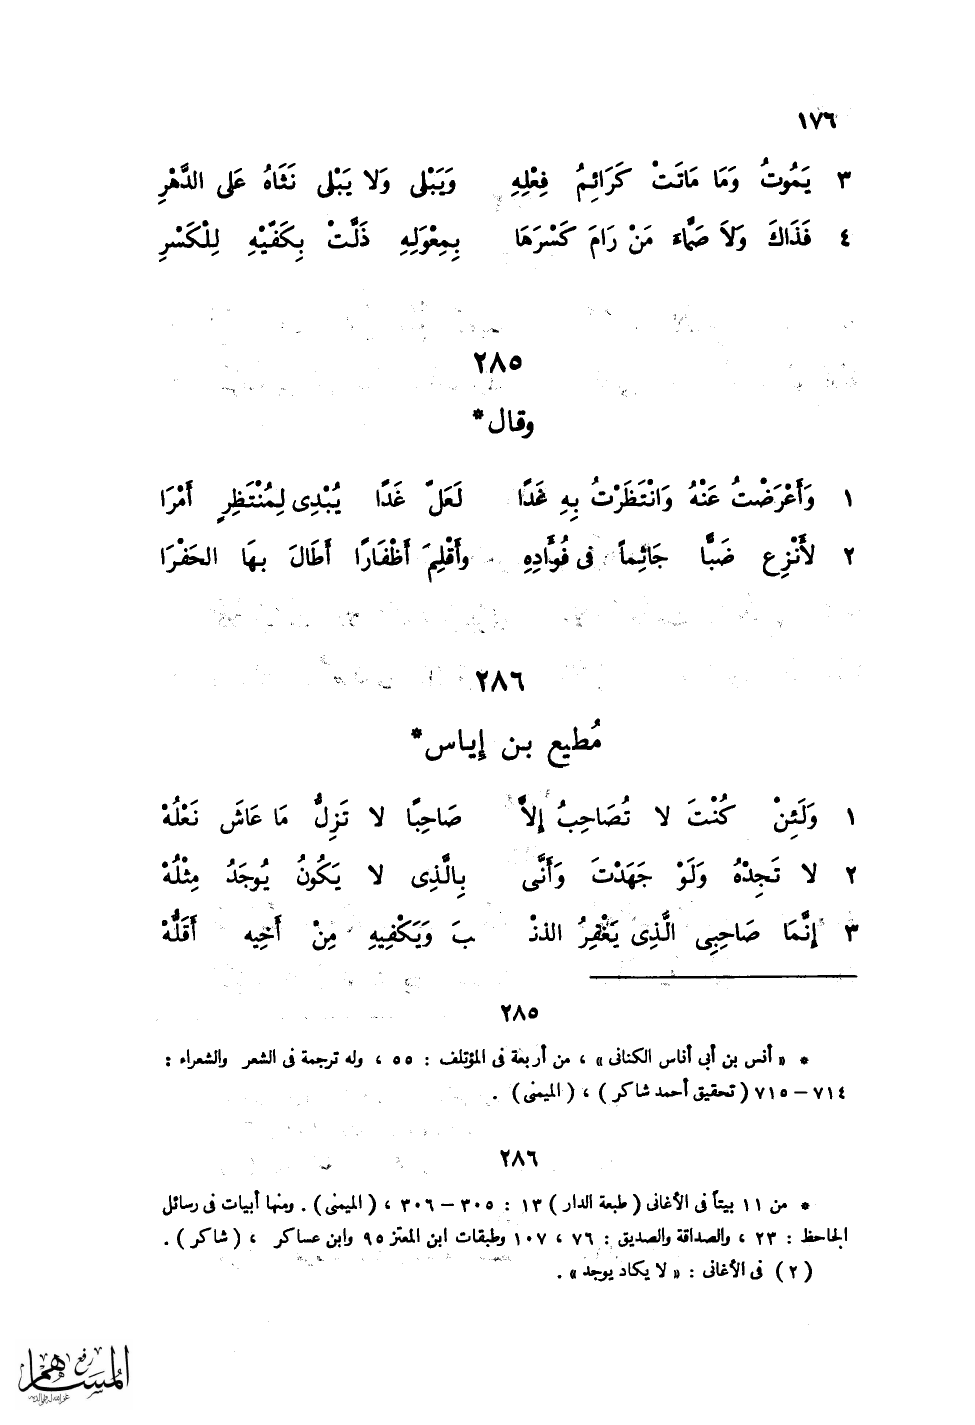 ١٧٦
٣ يَمُوتُ وَمَا مَاتَتْ كَرَائِمُ فِعْلِهِ وَيَبْلى وَلا يَبْلى نَثَاهُ عَلى الدَّهْرِ
٤ فَذَاكَ وَلاَ صَمَّاءَ مَنْ رَامَ كَسْرَهَا بِمِعْوَلِهِ ذَلَّتْ بِكَفَّيْهِ لِلْكَسْرِ
٢٨٥
وقال*
١ وَأَعْرَضْتُ عَنْهُ وَانْتَظَرْتُ بِهِ غَدًا لَعَلّ غَدًا يُبْدِى لِمُنْتَظِرٍ أَمْرَا
٢ لأَنْزِع ضَبًّا جَاثِماً فى فُوَّادِهِ وأُقْلِمَ أَظْفَارًا أَطَالَ بهَا الحَفْرَا
٢٨٦
مُطيع بن إياس*
١ وَلَئِنْ كُنْتَ لا تُصَاحِبُ إلاَّ صَاحِبًا لا تَزِلُّ مَا عَاشَ نَعْلُهْ
٢ لا تَجِدْهُ وَلَوْ جَهَدْتَ وَأَنَّى بِالَّذِى لا يَكُونُ يُوجَدُ مِثْلُهْ
٣ إنَّمَا صَاحِبِى الَّذِى يَغْفِرُ الذنْ بَ وَيَكْفِيهِ مِنْ أَخِيه أَقَلُّهْ
٢٨٥
* « أنس بن أبى أناس الكنانى » ، من أربعة فى المؤتلف : ٥٥ ، وله ترجمة فى الشعر والشعراء :
٧١٤ – ٧١٥ ( تحقيق أحمد شاكر ) ، ( الميمنى ) .
٢٨٦
* من ١١ بيتاً فى الأغانى ( طبعة الدار ) ١٣ : ٣٠٥ – ٣٠٦ ، ( الميمنى ) . ومنها أبيات فى رسائل
الجاحظ : ٢٣ ، والصداقة والصديق : ٧٦ ، ١٠٧ وطبقات ابن المعتز ٩٥ وابن عساكر ، ( شاكر ) .
( ٢ ) فى الأغانى : « لا يكاد يوجد » .